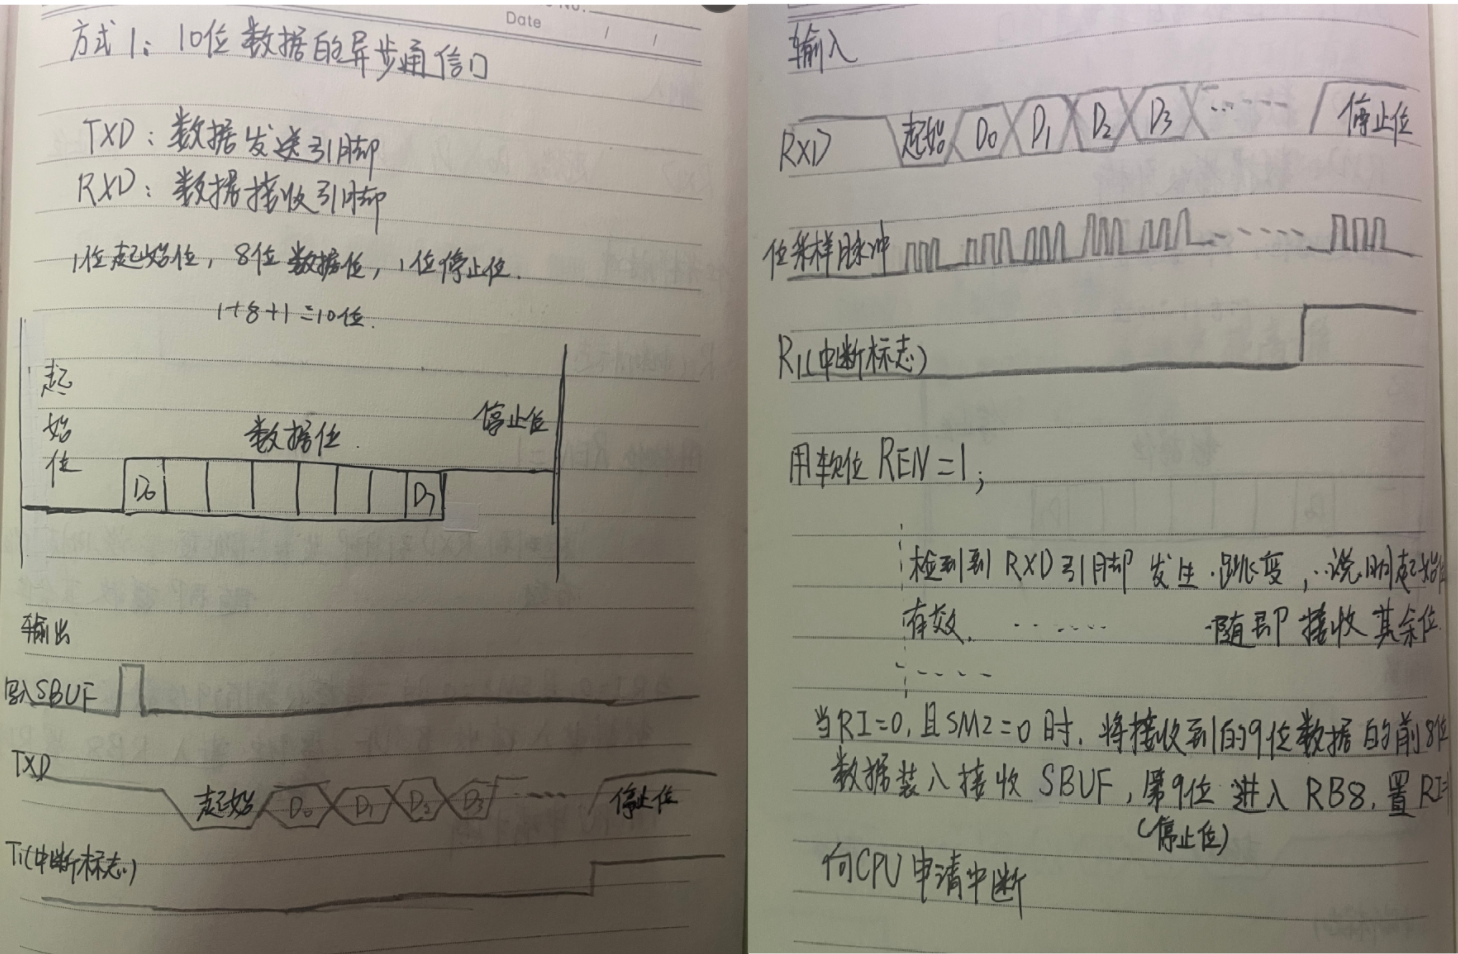 No.
Date
方式1：10位数据的异步通信口
TXD：数据发送引脚
RXD：数据接收引脚
1位起始位，8位数据位，1位停止位.
1+8+1=10位.
起
始
位
数据位
停止位
D0 D7
输出
写入SBUF
TXD
起始 D0 D1 D2 D3 停止位
TI(中断标志)
输入
RXD 起始 D0 D1 D2 D3 ...... 停止位
位采样脉冲
RI(中断标志)
用软位REN=1；
检到到RXD引脚发生.跳变，..说明起始
有效. ...... 随即接收其余位
当RI=0,且SM2=0时，将接收到的9位数据的前8位
数据装入接收SBUF，第9位进入RB8，置RI=
(停止位)
向CPU申请中断